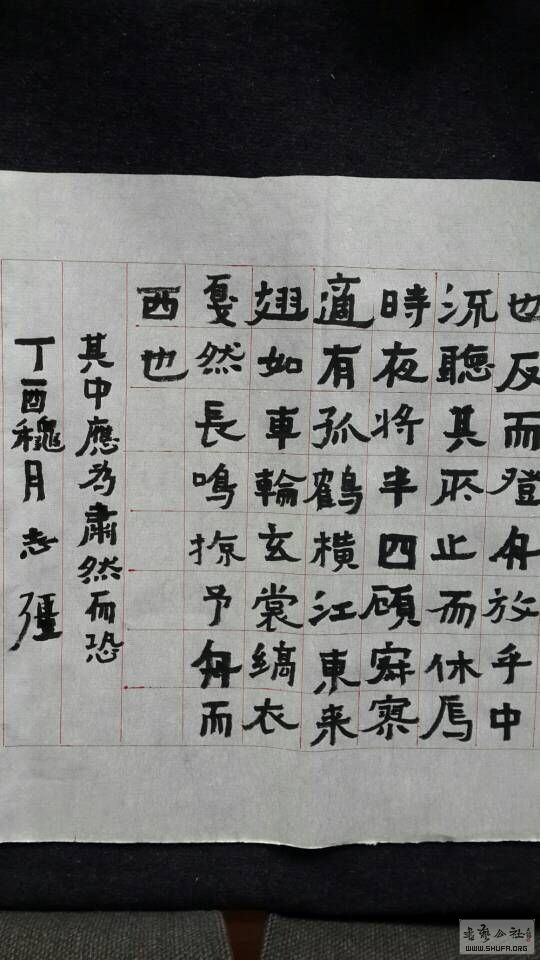 也反而登舟放乎中
流聽其所止而休焉
時夜將半四顧寂寥
適有孤鶴橫江東来
翅如車輪玄裳縞衣
戛然長鳴掠予舟而
西也
其中應為肅然而恐
丁酉穐月志彊
書藝公社
WWW.SHUFA.ORG